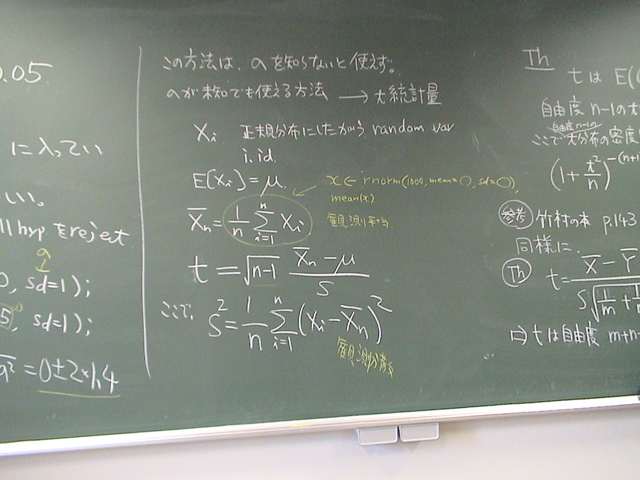 0.05
に入ってい
い。
ll hyp をreject
a
0, sd=1);
5, sd=1);
= 0±2×1.4
この方法は、aを知らないと使えず。
aが未知でも使える方法 → t統計量
Xi 正規分布にしたがう random var
i.id.
E[Xi] = μ.
x ← rnorm(1000, mean=0, sd=0),
mean(x)
X̄n = 1/n Σ_{i=1}^{n} Xi
観測平均
t = √(n-1) (X̄n - μ)/S
ここで, S² = 1/n Σ_{i=1}^{n} (Xi - X̄n)²
観測分散
Th
tは E(
自由度 n-1 のt
自由度 n-1の
ここで t分布の密度
(1 + t²/n)^{-(n+
参考 竹村の本 p.143
同様に.
Th t = X̄ - Ȳ / S√(1/m + 1/
⇨ tは自由度 m+n-